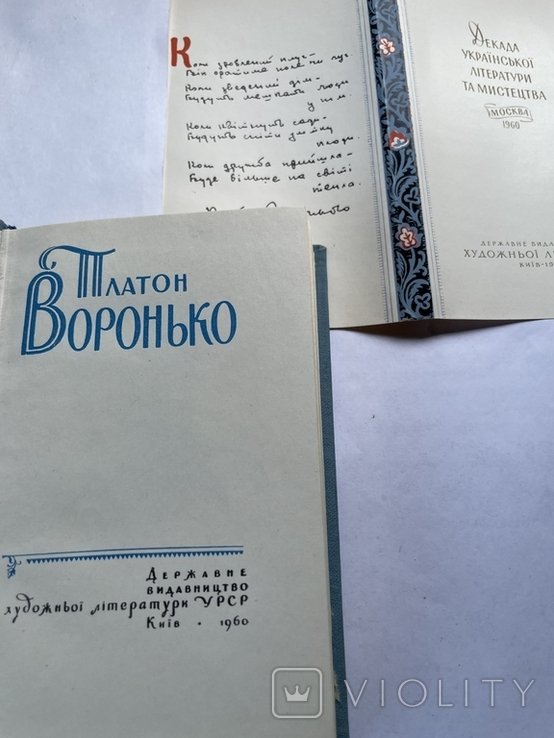 Коли зроблений плуг –
Він оратиме поле чи луг
Коли зведений дім –
Будуть мешкати люди
у нім.
Коли квітнуть сади –
Будуть
люди.
Коли дружба прийшла –
Буде більше на світі
тепла.
ДЕКАДА
УКРАЇНСЬКОЇ
ЛІТЕРАТУРИ
ТА МИСТЕЦТВА
МОСКВА
1960
ДЕРЖАВНЕ ВИДА
ХУДОЖНЬОЇ ЛІ
КИЇВ-19
ПЛАТОН
ВОРОНЬКО
ДЕРЖАВНЕ
ВИДАВНИЦТВО
художньої літератури УРСР
КИЇВ · 1960
VIOLITY